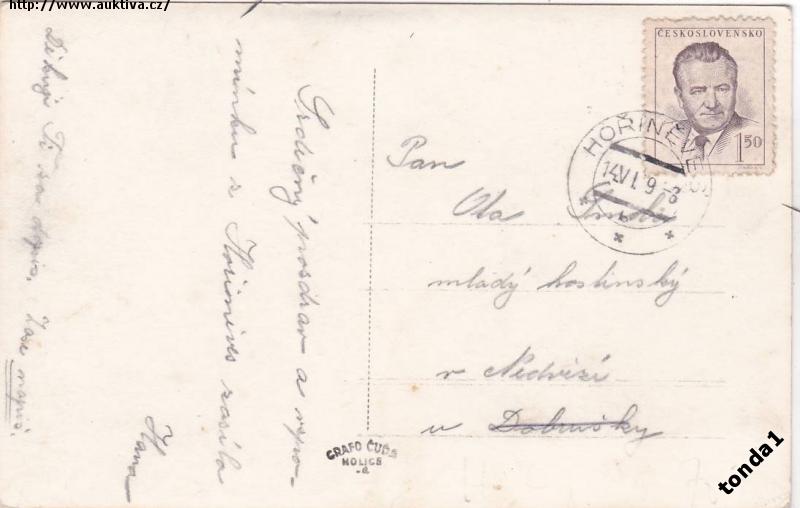 http://www.auktiva.cz/
ČESKOSLOVENSKO
1 50
HOŘINĚVES
14.VI. 9-8
Srdečný pozdrav a vzpo-
mínku z Hořiněves zasílá
Hana
Děkuji Ti za dopis. Zase napiš.
Pan
Ota
mladý hostinský
v Nedvězí
u Dobrušky
GRAFO ČUDA
HOLICE
tonda1